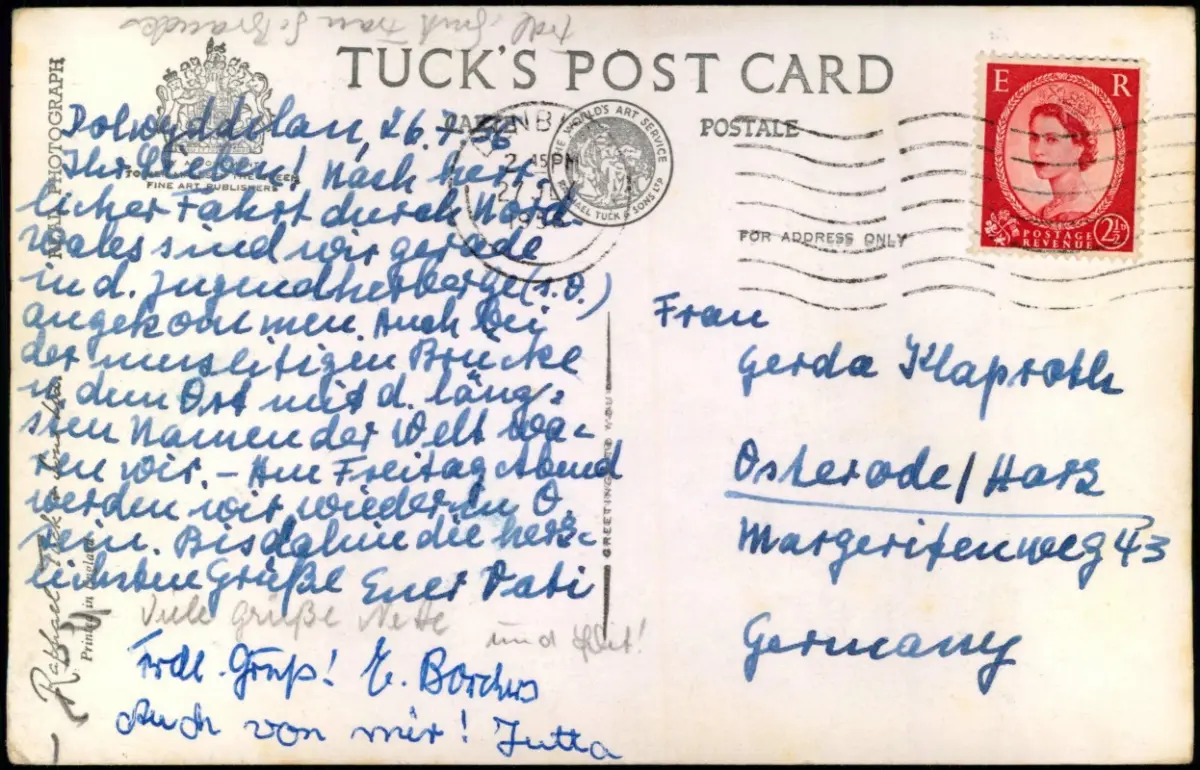 TUCK'S POST CARD
REAL PHOTOGRAPH
FINE ART PUBLISHERS
THE WORLD'S ART SERVICE
RAPHAEL TUCK & SONS LTD
POSTALE
FOR ADDRESS ONLY
E R
POSTAGE
REVENUE
2½D
2 45PM
Dolwyddelan, 26.7.56
Ihr Lieben! Nach herr-
licher Fahrt durch Nord-
wales sind wir gerade
in d. Jugendherberge (s. O.)
angekommen. Auch bei
der Brücke
u. dem Ort mit d. läng-
sten Namen der Welt wa-
ren wir. – Am Freitag Abend
werden wir wieder in O.
sein. Bis dahin die herz-
lichsten Grüße Euer Vati
Viele Grüße
und
Frdl. Gruß! E. Borchers
Auch von mir! Jutta
Frau
Gerda Klaproth
Osterode/Harz
Margeritenweg 43
Germany
Raphael Tuck & Sons Ltd.
Printed in England